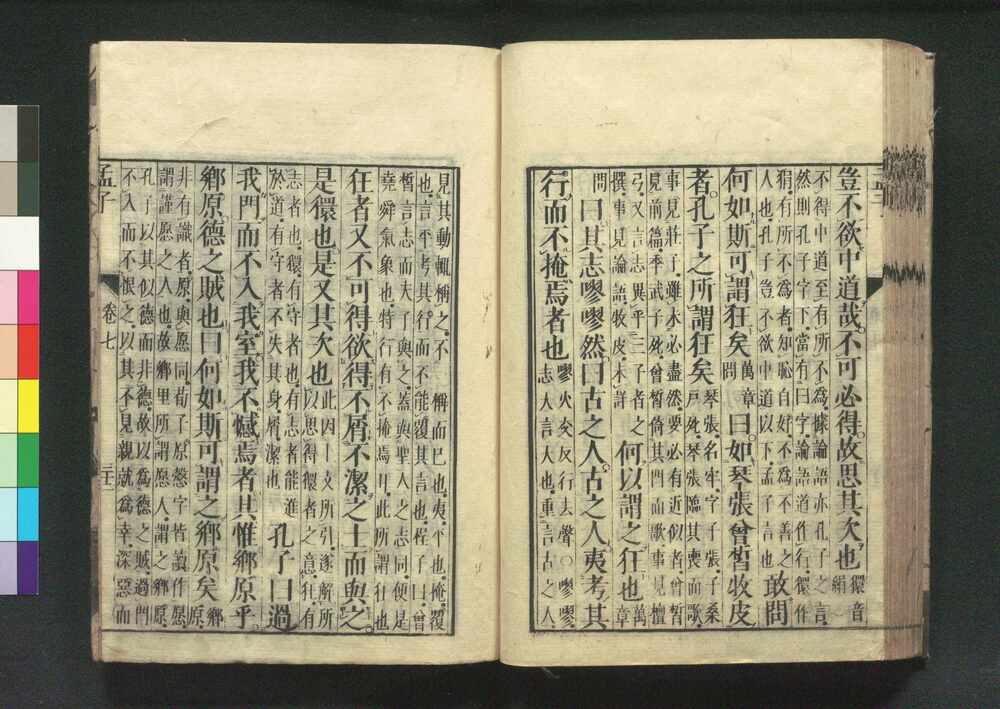 豈不欲中道哉不可必得故思其次也
獧音
絹
不得中道至有所不為據論語亦孔子之言
然則孔子字下當有曰字論語道作行獧作
狷有所不為者知恥自好不為不善之
人也孔子豈不欲中道以下孟子言也
敢問
何如斯可謂狂矣
萬章
問
曰如琴張曾晳牧皮
者孔子之所謂狂矣
琴張名牢字子張子桑
戶死琴張臨其喪而歌
事見莊子雖未必盡然要必有近似者曾晳
見前篇季武子死曾晳倚其門而歌事見檀
弓又言志異乎三子者之
撰事見論語牧皮未詳
何以謂之狂也
萬章
問
曰其志嘐嘐然曰古之人古之人夷考其
行而不掩焉者也
嘐火交反行去聲○嘐嘐
志大言大也重言古之人
見其動輒稱之不一稱而已也夷平也掩覆
也言平考其行而不能覆其言也程子曰曾
晳言志而夫子與之蓋與聖人之志同便是
堯舜氣象也特行有不掩焉耳此所謂狂也
狂者又不可得欲得不屑不潔之士而與之
是獧也是又其次也
此因上文所引遂解所
以思得獧者之意狂有
志者也獧有守者也有志者能進
於道有守者不失其身屑潔也
孔子曰過
我門而不入我室我不憾焉者其惟鄉原乎
鄉原德之賊也曰何如斯可謂之鄉原矣
鄉
原
非有識者原與愿同荀子原愨字皆讀作愿
謂謹愿之人也故鄉里所謂愿人謂之鄉原
孔子以其似德而非德故以為德之賊過門
不入而不恨之以其不見親就為幸深惡而
孟子
卷七